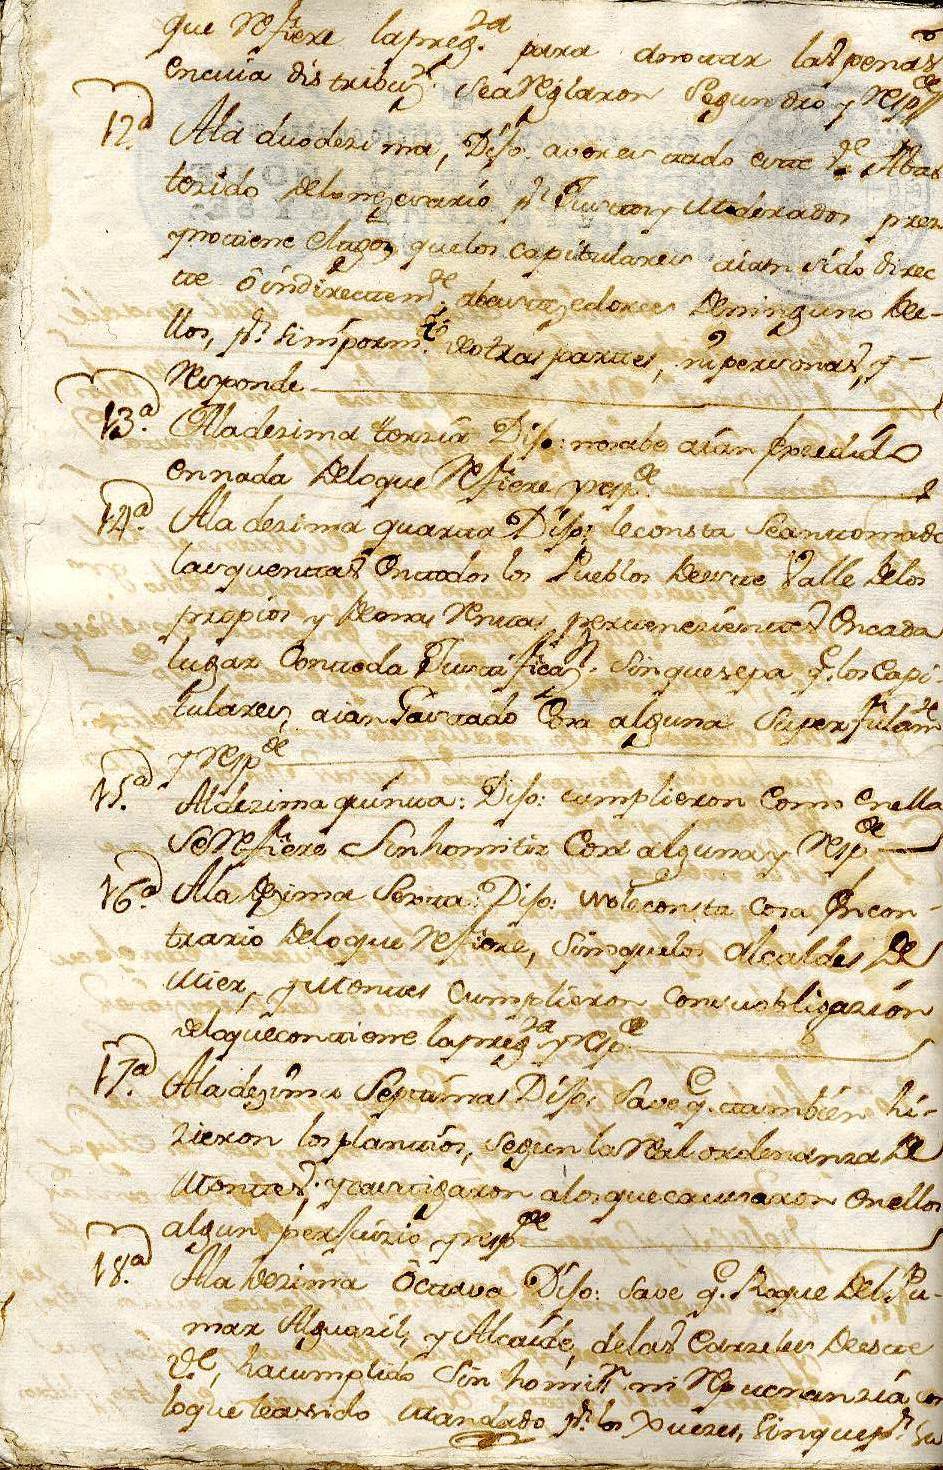 que Refiere la preg.ta para anotar las penas
en cuia distribuz.n se areglaron segun dro y Resp.de
12.a A la duodezima, Dijo: aver estado este V.e Abas
tezido de lo nezesario p.r Justos y Moderados prez
y no tiene el agoz que los capitulares aian sido direc
te ô indirectem.te abastezedores de ninguno de e-
llos, p.r si mismos de otras partes, ni personas, y
Responde
13.a A la dezima terzia Dijo: no sabe aian exzedido
en nada de lo que Refiere y resp.de
14.a A la dezima quarta Dijo: le consta se an tomado
las quentas en todos los Pueblos de este Valle de los
propios y demas Rentas, pertenezientes en cada
lugar con toda Justificaz.n sin que sepa q.e los Capi-
tulares, aian Gastado Cosa alguna superfluam.te
y resp.de
15.a A la dezima quinta: Dijo: cumplieron como en ella
se Refiere sin homitir Cosa alguna y Resp.de
16.a A la dezima Sexta: Dijo: no le consta cosa en con-
trario de lo que Refiere, sino que los Alcaldes de
Mier, y Montes cumplieron con su obligazion
de lo que contiene la preg.ta y resp.de
17.a A la dezima Septima Dijo: save q.e tambien hi-
zieron los plantios, segun la Real ordenanza de
Montes, y castigaron a los que causaron en ellos
algun perjuizio y resp.de
18.a A la dezima Octava Dijo: save q.e Roque del Pu-
mar Alguazil, y Alcaide, de las Carzeles de este
V.e, ha cumplido sin homis.n ni Repugnanzia, con
lo que le a sido Mandado p.r los Xuezes, sin que p.r su